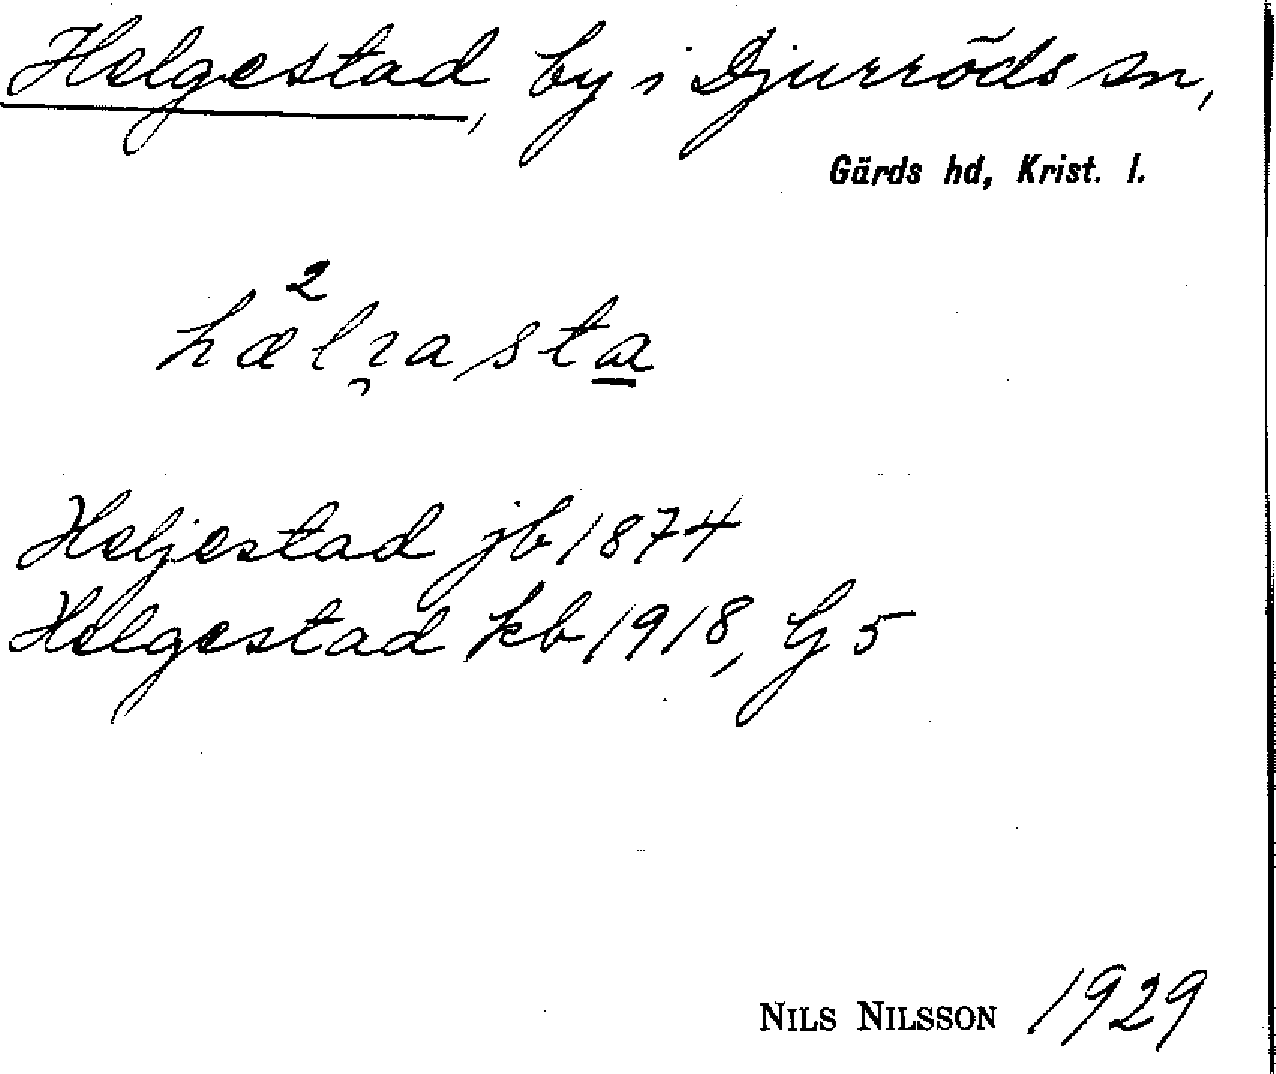 Helgestad, by i Djurröds sn,
Gärds hd, Krist. l.
2
Heljestad jb 1874
Helgestad kb 1918, G 5
NILS NILSSON 1929